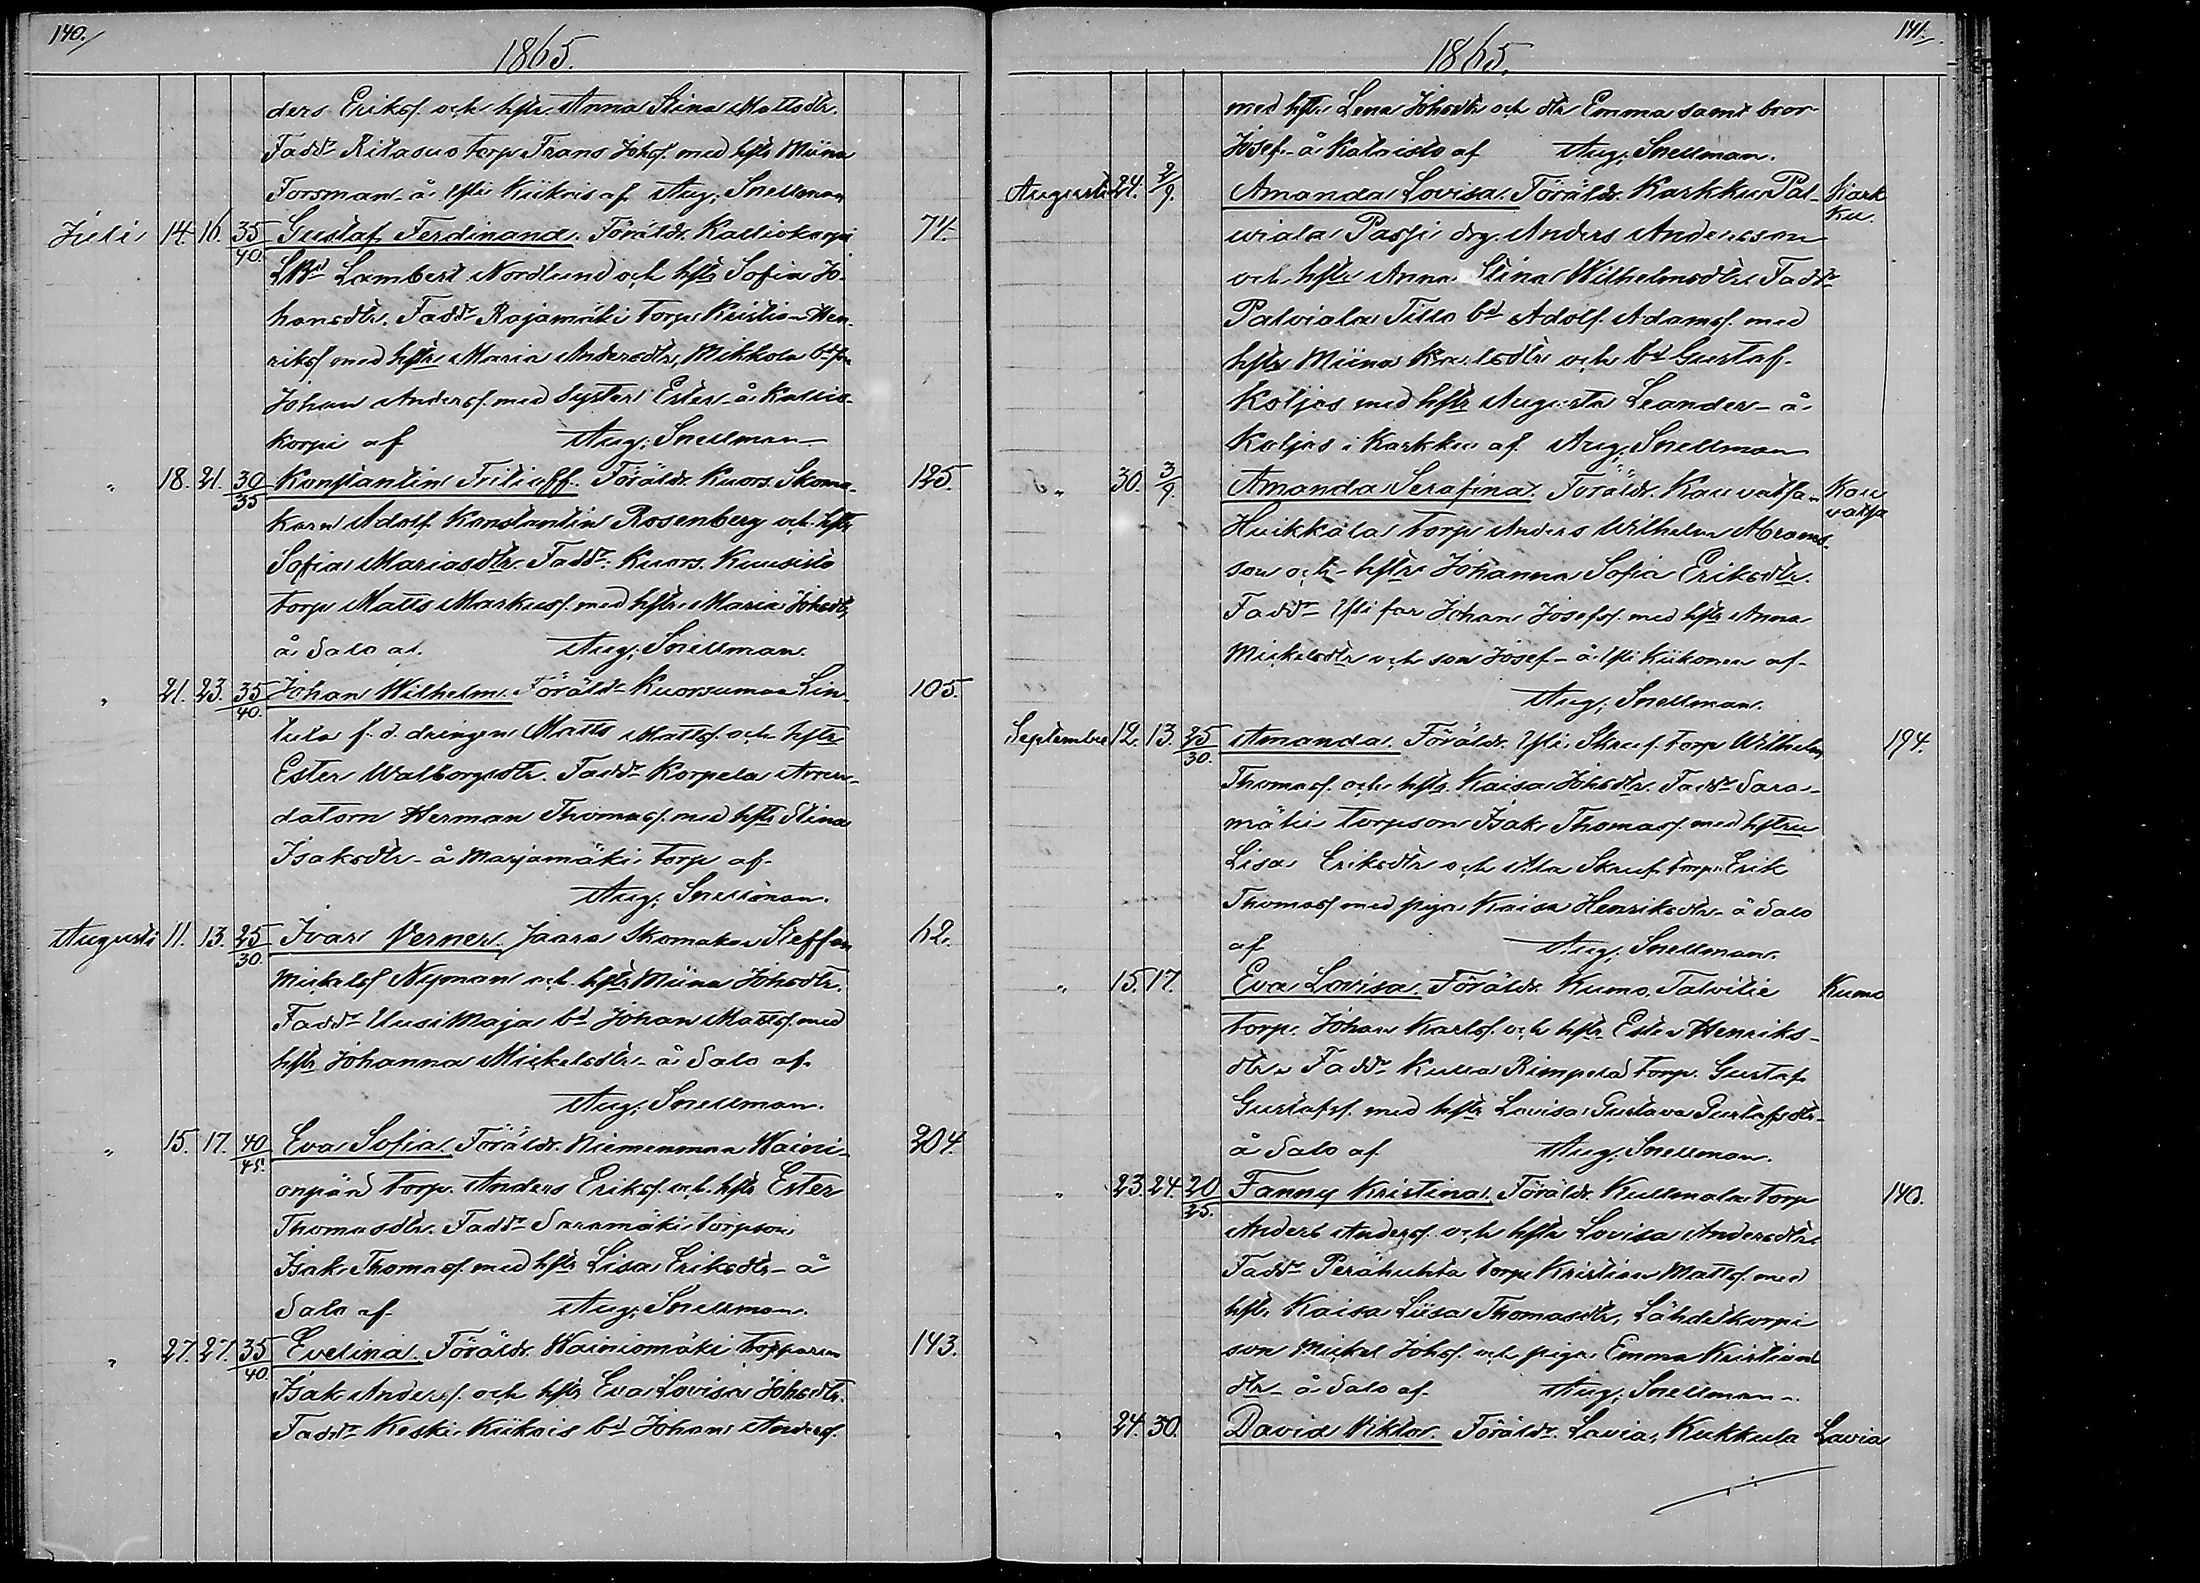 140./
1865.
ders Eriksf. och hstr. Anna Stina Mattsdtr.
Faddr Ritasuo torp. Frans Johsf. med hstr Miina
Forsman å Yli Kiikois af Aug; Snellman
Juli 14. 16. 35/40. Gustaf Ferdinand. Föräldr. Kalliokorpi 74.
Lambert Nordlund och hstr Sofia Jo-
hansdtr. Faddr Rajamäki torp. Kristian Hen-
riksf med hstr Maria Andersdtr, Mikkola
Johan Andersf. med syster Ester å Kallio-
korpi af Aug; Snellman
" 18. 21. 30/35 Konstantin Fritioff. Föräldr. Kuors. Skoma- 125.
karn Adolf Konstantin Rosenberg och hstr
Sofia Mariasdtr. Faddr: Kuors. Kuusisto
torp Matts Markusf. med hstr. Maria Johsdtr
å Salo af Aug; Snellman.
" 21. 23. 35/40. Johan Wilhelm. Föräldr Kuorsumaa Lin- 105.
tula f. d. drängen Matts Mattsf. och hstr
Ester Walborgsdtr. Faddr Korpela Arren-
datorn Herman Thomasf. med hstr Stina
Isaksdtr å Marjamäki torp af
Aug; Snellman.
Augusti 11. 13. 25/30. Ivar Verner. Jaara Skomakar Steffan 62.
Mickelsf Nyman och hstr Miina Johsdtr.
Faddr Uusi Maja bd Johan Mattsf. med
hstr Johanna Mickelsdtr å Salo af
Aug; Snellman.
" 15. 17. 40/45. Eva Sofia. Föräldr. Niemenmaa Waini- 204.
onpää torp. Anders Eriksf. och hstr Ester
Thomasdtr. Faddr Saramäki torpson
Isak Thomasf. med hstr Lisa Eriksdtr å
Salo af Aug; Snellman.
" 27. 27. 35/40. Evelina. Föräldr. Wainiomäki torparen 143.
Isak Andersf. och hstr Eva Lovisa Johsdtr.
Faddr Keski Kiikois bd Johan Andersf.
141./
1865.
med hstr Lena Johsdtr och dtr Emma samt bror
Josef å Kataisto af Aug; Snellman.
Augusti 24. 2/9. Amanda Lovisa. Föräldr. Karkku Pal- Kark
viala Passi drg. Anders Andersson ku.
och hstr Anna Stina Wilhelmsdtr Faddr
Palviala Tillo bd Adolf Adamsf. med
hstr Miina Karlsdtr och bd Gustaf
Koljas med hstr Augusta Leander å
Koljas i Karkku af Aug; Snellman
" 30. 3/9. Amanda Serafina. Föräldr. Kauvatsa Kau
Huikkala torp Anders Wilhelm Abrams- vatsa
son och hstr Johanna Sofia Eriksdtr.
Faddr Yli far Johan Josefsf. med hstr Anna
Mickelsdtr och son Josef å Yli Kiikonen af
Aug; Snellman.
September 12. 13. 25/30. Amanda. Föräldr. Yli Skruf. torp Wilhelm 194.
Thomasf. och hstr. Kaisa Johsdtr. Faddr Sara-
mäki torpson Isak Thomasf. med hstru
Lisa Eriksdtr och Ala Skruf. torp. Erik
Thomasf med piga Kaisa Henriksdtr å Salo
af Aug; Snellman.
" 15. 17. Eva Lovisa. Föräldr. Kumo. Talvitie Kumo
torp. Johan Karlsf. och hstr. Ester Henriks-
dtr. Faddr Kulla Rimpelä torp. Gustaf
Gustafsf. med hstr Lovisa Gustava Gustafsdtr
å Salo af Aug; Snellman.
" 23. 24. 20/25. Fanny Kristina. Föräldr. Kullmala torp 140.
Anders Andersf. och hstr Lovisa Andersdtr
Faddr Perähuhta torp. Kristian Mattsf. med
hstr. Kaisa Liisa Thomasdtr, Lähdekorpi
son Mickel Johsf. och piga Emma Kristians
dtr å Salo af Aug; Snellman
" 24. 30. David Viktor. Föräldr. Lavia, Kukkula Lavia